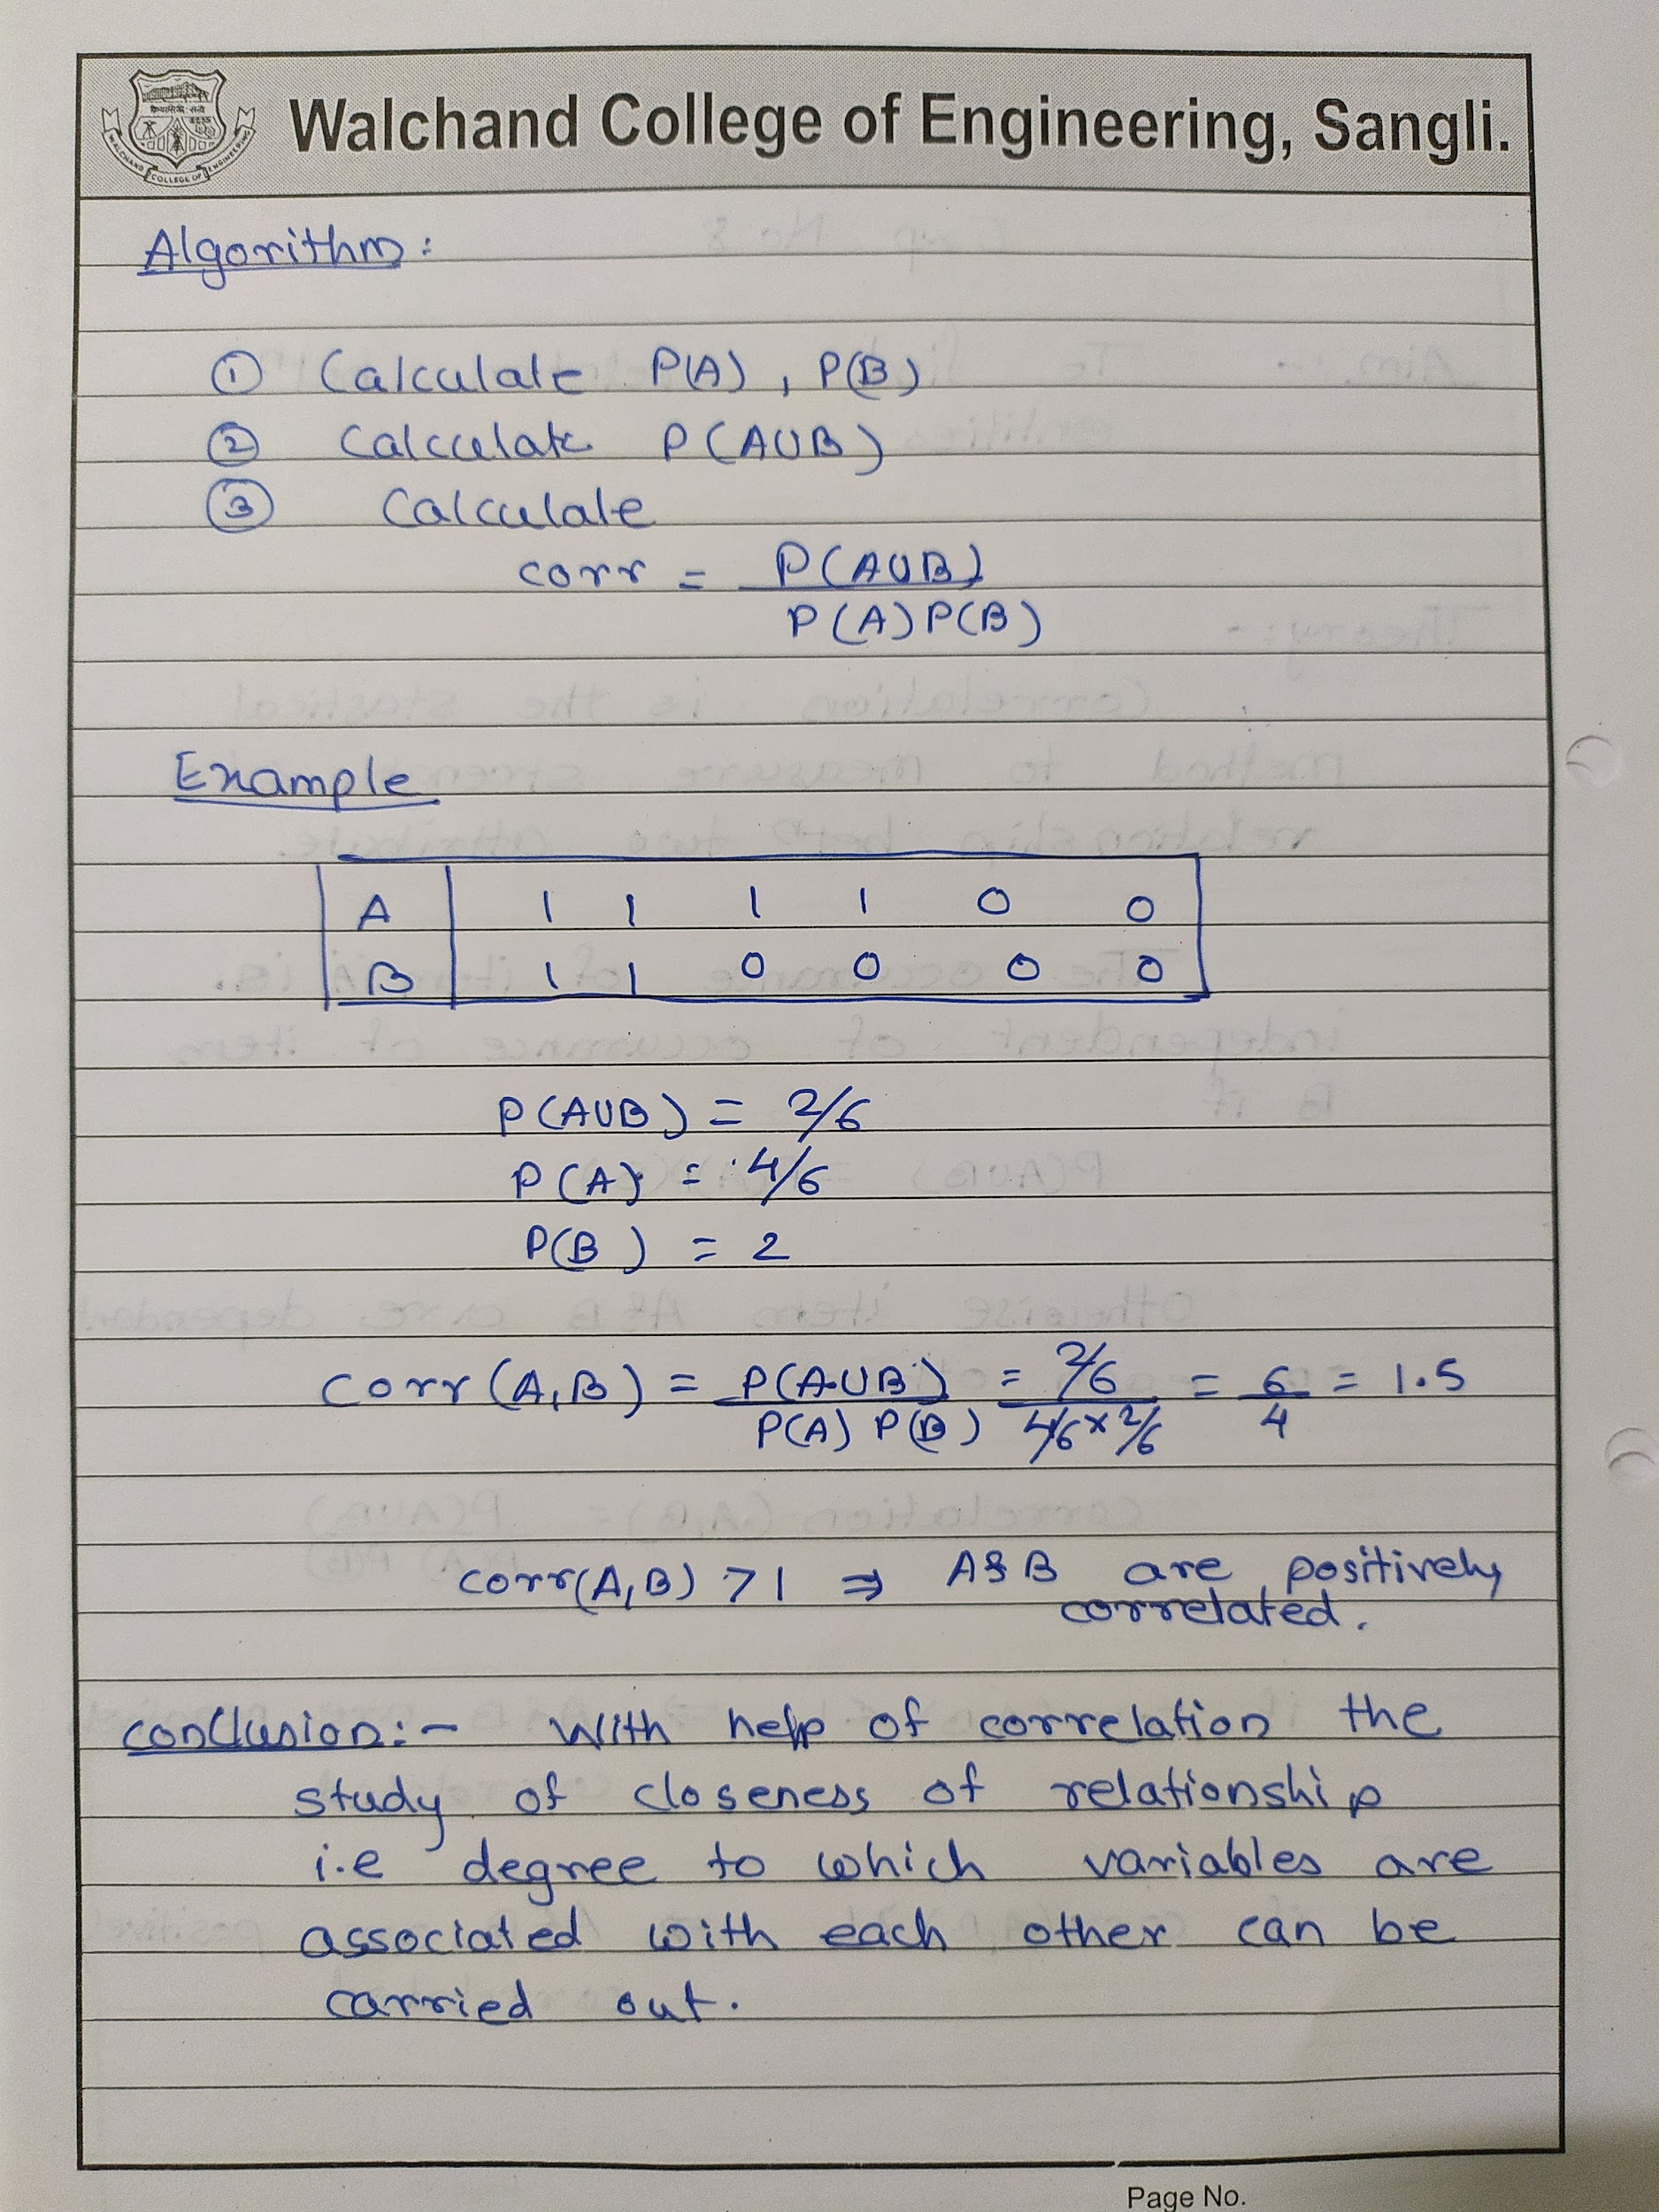 Walchand College of Engineering, Sangli.
Algorithm:
① Calculate P(A), P(B)
② Calculate P(AUB)
③ Calculate
corr = P(AUB)
P(A)P(B)
Example
A 1 1 1 1 0 0
B 1 1 0 0 0 0
P(AUB) = 2/6
P(A) = 4/6
P(B) = 2
corr(A,B) = P(AUB) = 2/6 = 6 = 1.5
P(A) P(B) 4/6 × 2/6 4
corr(A,B) > 1 ⇒ A & B are positively
correlated.
conclusion:- With help of correlation the
study of closeness of relationship
i.e degree to which variables are
associated with each other can be
carried out.
Page No.